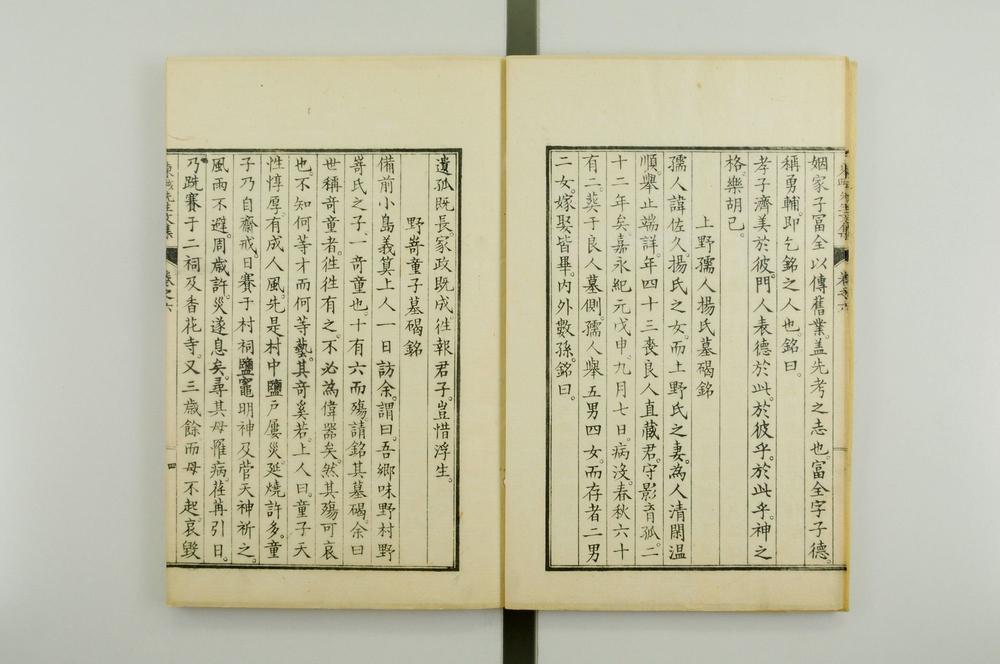 姻家子冨全以傳舊業。盖先考之志也。冨全字子德。
稱勇輔。即乞銘之人也。銘曰。
孝子濟美於彼。門人表德於此。於彼乎。於此乎。神之
格。樂胡已。
上野孺人揚氏墓碣銘
孺人諱佐久。揚氏之女。而上野氏之妻。為人清閑温
順。舉止端詳。年四十三喪良人直藏君。守影育孤。二
十二年矣。嘉永紀元戊申。九月七日病沒。春秋六十
有二。葬于良人墓側。孺人舉五男四女。而存者二男
二女。嫁娶皆畢。内外數孫。銘曰。
遺孤既長。家政既成。徃報君子。豈惜浮生。
野嵜童子墓碣銘
備前小島義筭上人一日訪余。謂曰。吾鄉味野村野
嵜氏之子、一奇童也。十有六而殤。請銘其墓碣。余曰
世稱奇童者。徃徃有之。不必為偉器矣。然其殤可哀
也。不知何等才而何等藝。其奇奚若。上人曰。童子天
性惇厚。有成人風。先是村中鹽戸屢災。延燒許多。童
子乃自齋戒。日賽于村祠鹽竈明神及菅天神祈之。
風雨不避。周歲許。災遂息矣。尋其母罹病。荏苒引日。
乃跣賽于二祠及香花寺。又三歲餘而母不起。哀毀
先生文集
卷之六
四